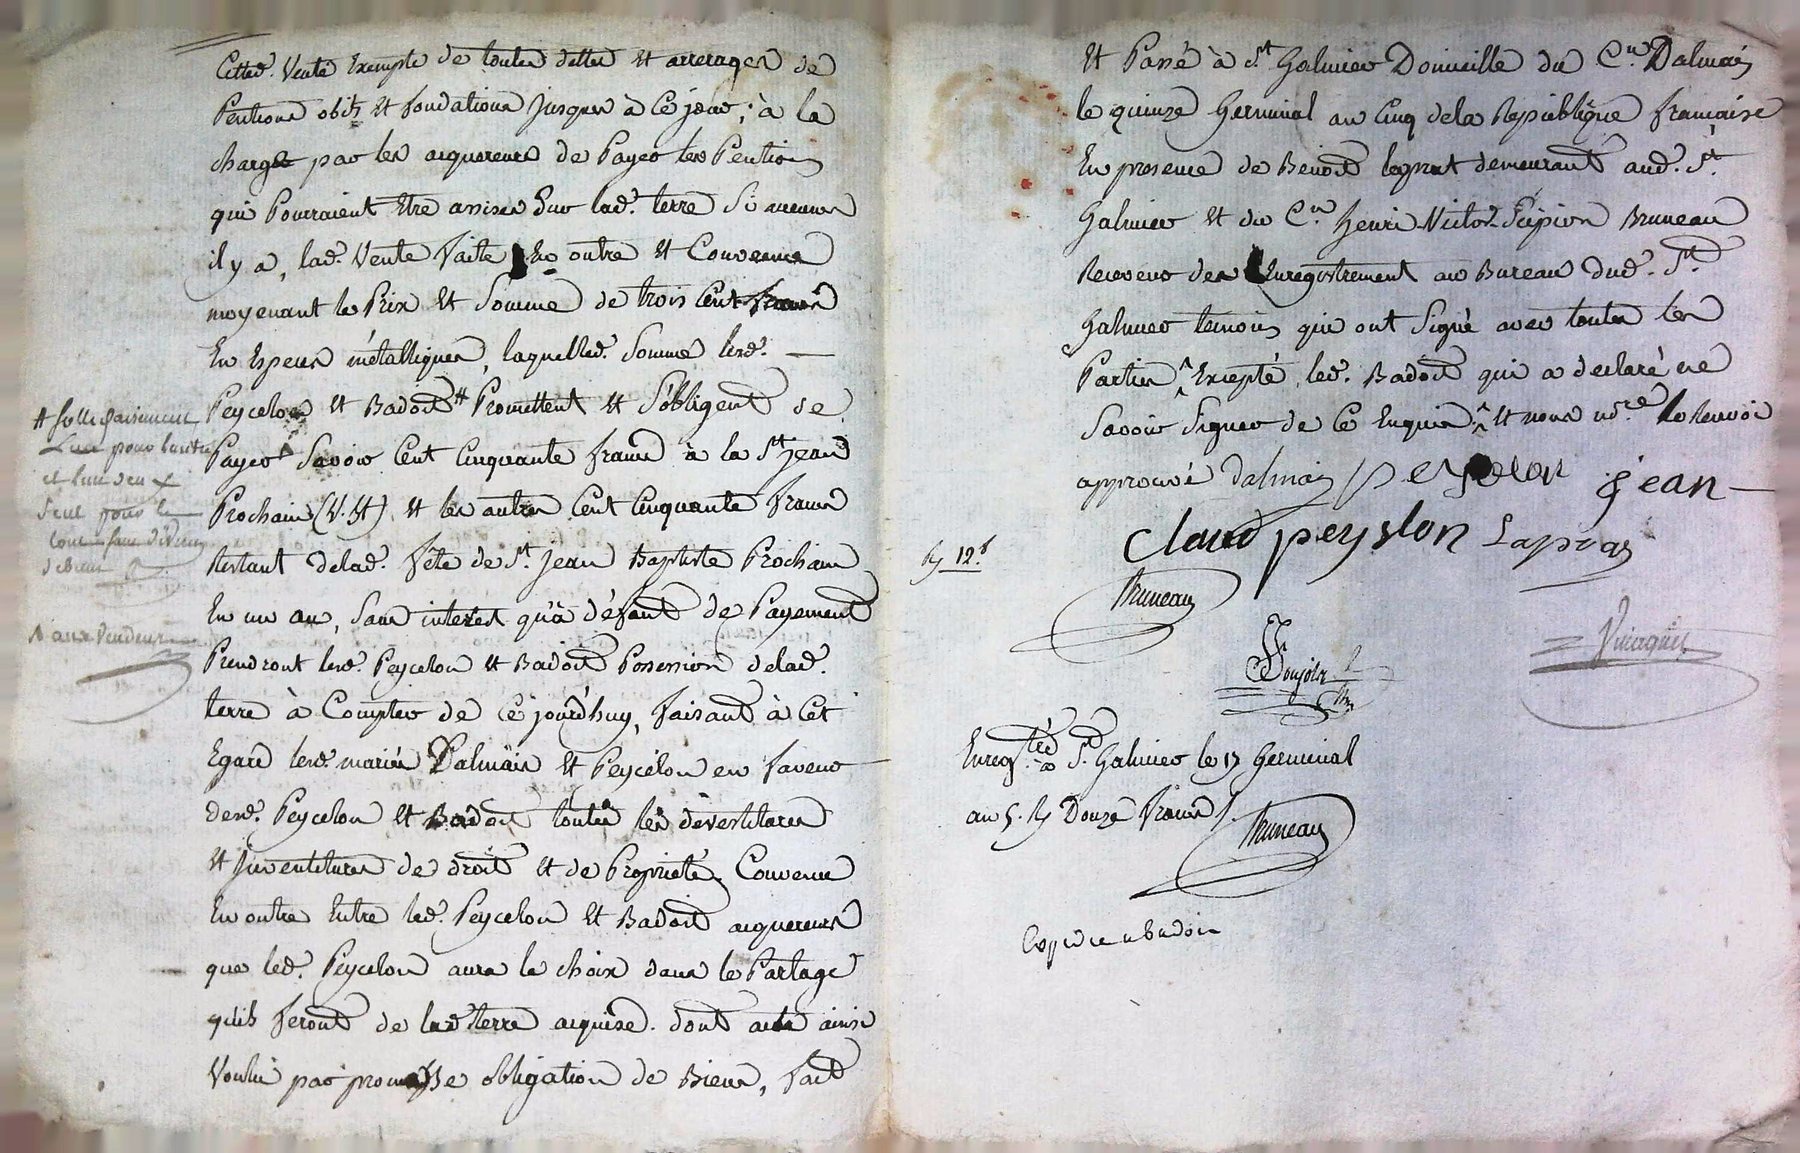 Cetted. Vente Exempte de toutes dettes et arrerages de
Pentions obits et fondations jusques à ce jour; à la
charge par les acquereurs de Payer les Pentions
qui Pourraient Etre assises sur lad. terre si aucunes
il y a, lad. Vente faite En outre et Convenue
moyenant le Prix et Somme de trois Cent francs
En Especes métalliques, laquelled. Somme lesd.
Peycelon et Badoit # Promettent et S'obligent de
Payer Savoir Cent Cinquante francs à la St. Jean
Prochain (V.St) et les autres Cent Cinquante francs
Restant delad. fête de St. Jean Baptiste Prochain
En un an, Sans interest qu'à défaut de Payement
Prendront lesd. Peycelon et Badoit Possession delad.
terre à Compter de Ce jourd'huy, faisant à Cet
Egard lesd. mariés Dalmais et Peycelon en faveur
desd. Peycelon et Badoit toutes les dévestitures
et Investitures de droit et de Propriété, Convenu
En outre Entre led. Peycelon et Badoit acquereurs
que led. Peycelon aura le choix dans le Partage
qu'ils feront de lad. terre acquise. dont acte ainsi
Voulu par promesse obligation de Biens, fait
# Sollidairement
L'un pour l'autre
et l'un deux
Seul pour le
tout sans division
aux Vendeurs
Et Passé à St. Galmier Domicille du Cn. Dalmais
le quinze Germinal an Cinq dela Republique française
En presence de Benoit laprat demeurant aud. St.
Galmier et du Cn. Henri-Victor-Scipion Bruneau
Receveur de l'Enregistrement au Bureau dud. St.
Galmier temoins qui ont Signé avec toutes les
Parties Excepté led. Badoit qui a declaré ne
Savoir Signer de ce Enquis et nous nre. le Renvoi
approuvé Dalmais peyselon jean
Claud peyslon Lapras
12f
Bruneau
Enregtré. a St. Galmier le 17 Germinal
an 5. Rç Douze francs
Bruneau